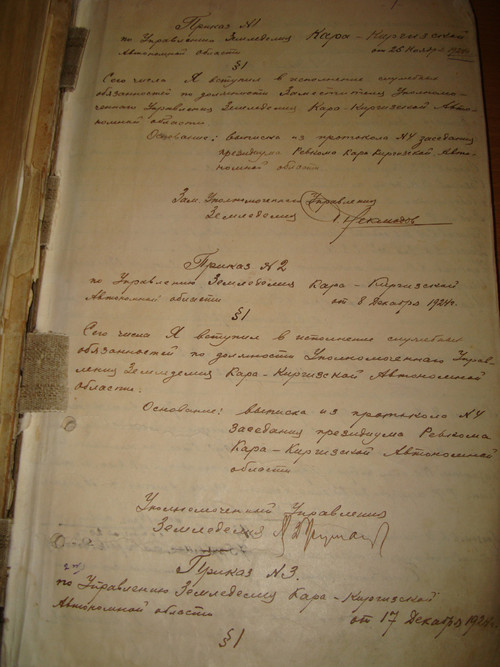 Приказ №1
по Управлению Земледелия Кара-Киргизской
Автономной области от 26 Ноября 1924г.
§1
Сего числа Я вступил в исполнение служебн
обязанностей по должности Заместителя Уполномо-
ченнаго Управления Земледелия Кара-Киргизской Авто-
номной области.
Основание: выписка из протокола №4 заседания
президиума Ревкома Кара Киргизской Авто-
номной области
Зам. Уполномоченнаго Управления
Земледелия
Приказ №2
по Управлению Земледелия Кара-Киргизской
Автономной области от 8 Декабря 1924г.
§1
Сего числа Я вступил в исполнение служебных
обязанностей по должности Уполномоченнаго Управ-
ления Земледелия Кара-Киргизской Автономной
области.
Основание: выписка из протокола №4
заседания президиума Ревкома
Кара-Киргизской Автономной
области
Уполномоченный Управления
Земледелия
Приказ №3.
по Управлению Земледелия Кара-Киргизской
Автономной области от 17 Декабря 1924г.
§1